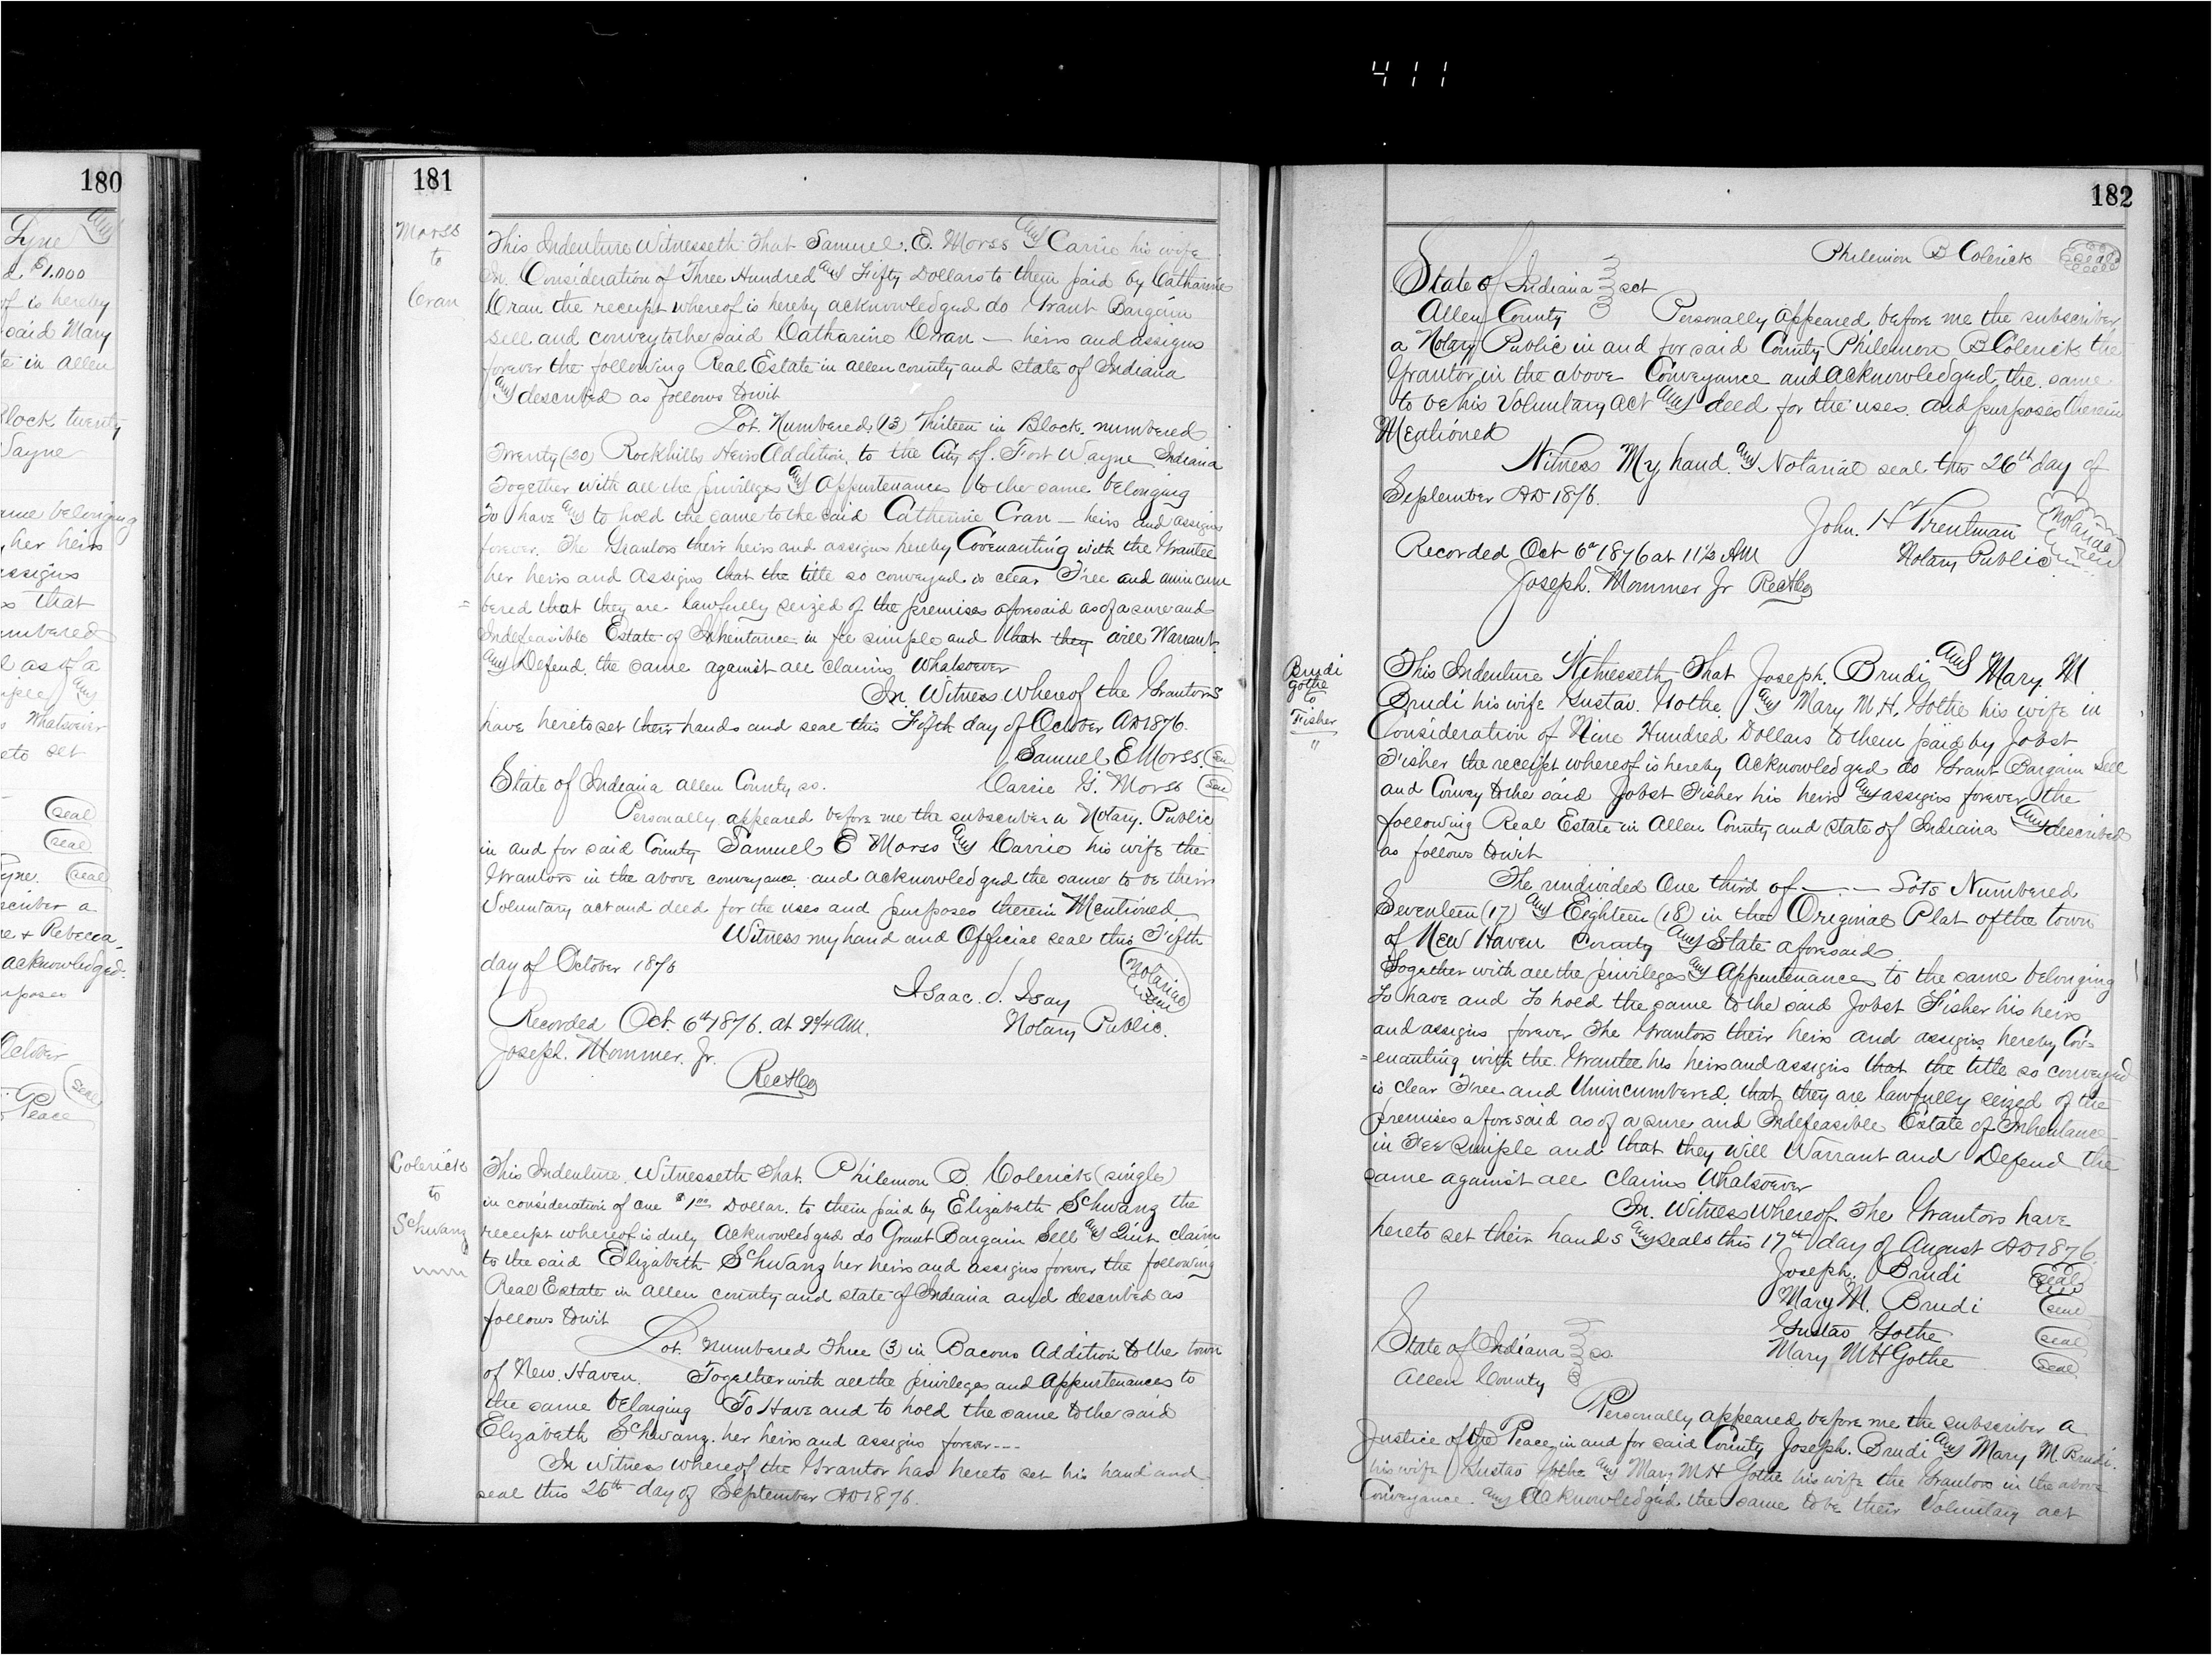 411
180
Lyne and
d $1.000
of is hereby
said Mary
te in Allen
Block twenty
Wayne
ame belonging
, her heirs
assigns
s that
umbered
l as of a
mple and
s Whatsoever
eto set
seal
seal
yne. seal
scriber a
e + Rebecca
acknowledged
urposes
October
seal
Peace
181
Morss
to
Cran
This Indenture Witnesseth That Samuel. E. Morss and Carrie his wife
In Consideration of Three Hundred and Fifty Dollars to them paid by Catharine
Cran the receipt whereof is hereby acknowledged do Grant Bargain
sell and convey to the said Catharine Cran — heirs and assigns
forever the following Real Estate in Allen county and state of Indiana
and described as follows towit
Lot. Numbered (13) Thirteen in Block. numbered
Twenty (20) Rockhills Heirs Addition to the City of. Fort Wayne Indiana
Together with all the privileges and Appurtenances to the same belonging
To have and to hold the same to the said Catherine Cran — heirs and assigns
forever. The Grantors their heirs and assigns hereby Covenanting with the Grantee
her heirs and Assigns that the title so conveyed is clear Free and unincum
= bered that they are lawfully seized of the premises aforesaid as of a sure and
Indefeasible Estate of Inheritance in fee simple and that they will Warrant
and Defend the same against all claims Whatsoever
In Witness whereof the Grantors
have hereto set their hands and seal this Fifth day of October AD 1876.
Samuel E Morss. seal
State of Indiana Allen County ss. Carrie G. Morss seal
Personally appeared before me the subscriber a Notary. Public
in and for said County Samuel E Morss and Carrie his wife the
Grantors in the above conveyance. and acknowledged the same to be their
Voluntary act and deed for the uses and purposes therein Mentioned.
Witness my hand and Official seal this Fifth
day of October 1876 Notarial Seal
Isaac. d. Isay
Recorded Oct. 6th 1876. at 9 3/4 AM. Notary Public.
Joseph. Mommer. Jr.
Rec A Co
Colerick
to
Schwang
This Indenture. Witnesseth That. Philemon B. Colerick (single)
in consideration of one $1.00 Dollar. to them paid by Elizabeth Schwang the
receipt whereof is duly Acknowledged do Grant Bargain Sell and Quit claim
to the said Elizabeth Schwang her heirs and assigns forever the following
Real Estate in Allen county and state of Indiana and described as
follows towit
Lot Numbered Three (3) in Bacons Addition to the town
of New. Haven. Together with all the privileges and Appurtenances to
the same belonging To Have and to hold the same to the said
Elizabeth Schwang. her heirs and assigns forever---
In Witness whereof the Grantor has hereto set his hand and
seal this 26th day of September AD 1876.
182
Philemon B Colerick seal
State of Indiana } sct
Allen County Personally appeared before me the subscriber
a Notary Public in and for said County Philemon B Colerick the
Grantor in the above Conveyance and acknowledged the same
to be his Voluntary act and deed for the uses. and purposes therein
Mentioned
Witness My hand and Notarial seal this 26th day of
September AD 1876.
John. H Trentman Notarial Seal
Recorded Oct 6th 1876 at 11 1/2 AM Notary Public
Joseph. Mommer Jr Rec A Co
Brudi
Gothe
to
Fisher
"
This Indenture Witnesseth That Joseph. Brudi and Mary. M
Brudi his wife Gustav. Gothe. and Mary M. H. Gothe his wife in
Consideration of Nine Hundred Dollars to them paid by Jobst
Fisher the receipt whereof is hereby Acknowledged do Grant Bargain Sell
and Convey to the said Jobst Fisher his heirs and assigns forever the
following Real Estate in Allen County and state of Indiana and described
as follows towit
The undivided One third of — — Lots Numbered
Seventeen (17) and Eighteen (18) in the Original Plat of the town
of New Haven County and State aforesaid.
Together with all the privileges and Appurtenances to the same belonging
To have and To hold the same to the said Jobst Fisher his heirs
and assigns forever The Grantors their heirs and assigns hereby Cov=
=enanting with the Grantee his heirs and assigns that the title so conveyed
is clear Free and Unincumbered. that they are lawfully seized of the
premises aforesaid as of a sure and Indefeasible Estate of Inheritance
in Fee Simple and that they will Warrant and Defend the
same against all claims Whatsoever
In. Witness whereof The Grantors have
hereto set their hands and seals this 17th day of August AD 1876.
Joseph. Brudi seal
Mary M. Brudi seal
Gustav Gothe seal
State of Indiana } ss. Mary M H Gothe seal
Allen County
Personally appeared before me the subscriber a
Justice of the Peace in and for said County Joseph. Brudi and Mary M. Brudi.
his wife Gustav Gothe and Mary M H Gothe his wife the Grantors in the above
Conveyance. and Acknowledged the same to be their Voluntary act